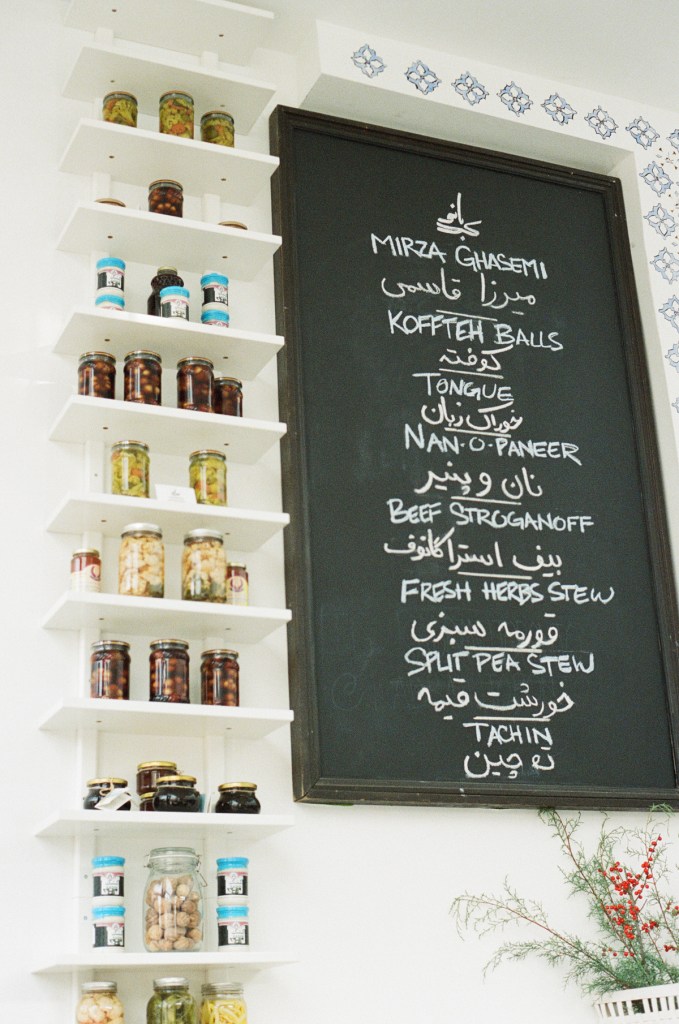 بانو
MIRZA GHASEMI
میرزا قاسمی
KOFFTEH BALLS
کوفته
TONGUE
خوراک زبان
NAN-O-PANEER
نان و پنیر
BEEF STROGANOFF
بیف استراگانوف
FRESH HERBS STEW
قورمه سبزی
SPLIT PEA STEW
خورشت قیمه
TACHIN
ته چین